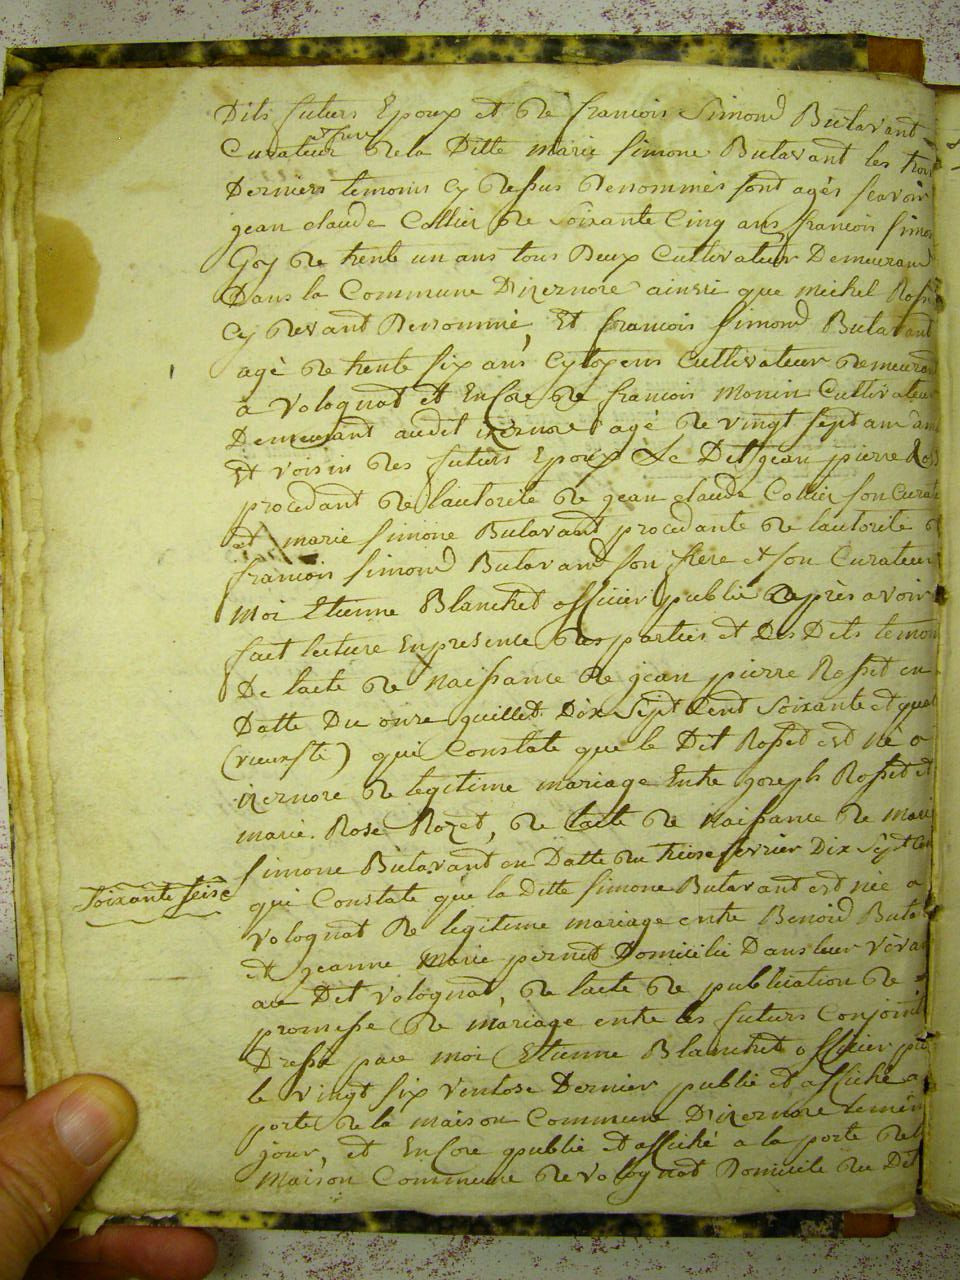 Dits futurs Epoux et de francois Simond Butavant
Curateur et frere de la Ditte marie simone Butavant les trois
Derniers temoins cy dessus denommés sont agés scavoir
jean claude Collier de soixante Cinq ans francois simon
Goy de trente un ans tous Deux Cultivateur Demeurand
Dans la Commune D'izernore ainssi que michel Rosset
cy devant Denommé, Et francois simond Butavant
agé de trente six ans Cytoyens Cultivateur demeurand
a volognat et Encore de francois monin Cultivateur
Demeurant audit izernore agé de vingt sept ans ami
Et voisin des futurs Epoux Le Dit jean pierre Ross
procedant de l'autorité de jean claude Collier son Curate
et marie simone Butavand procedante de l'autorité d
francois simond Butavand son frere et son Curateur
moi Etienne Blanchet officier public après avoir
fait lecture En presence des parties et Des Dits temoin
De l'acte de Naissance de jean pierre Rosset en
Datte Du onze juillet Dix sept Cent soixante et quat
(vieux ste) qui Constate que le Dit Rosset est né a
izernore de legitime mariage Entre joseph Rosset et
marie Rose Rozet, de l'acte de Naissance de marie
simone Butavant en Datte du treise fevrier Dix sept Cen
soixante seise
qui Constate que la Ditte simone Butavant est née a
volognat De legitime mariage entre Benoid Butav
et jeanne marie pernet Domicilié Dans leur vivan
au Dit volognat, de l'acte de publication de
promesse de mariage entre les futurs Conjoint
Dressé par moi Etienne Blanchet officier pu
le vingt six ventose Dernier publié et affiché a
porte de la maison Commune D'izernore le mêm
jour, et Encore publié et affiché a la porte de l
maison Commune de volognat Domicile du Dit